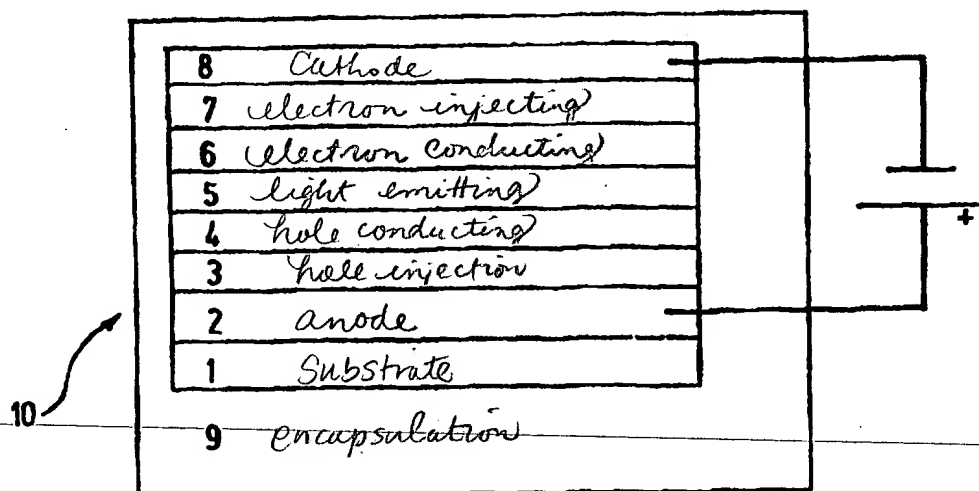 8 Cathode
7 electron injecting
6 electron conducting
5 light emitting
4 hole conducting
3 hole injection
+
2 anode
1 Substrate
10
9 encapsulation